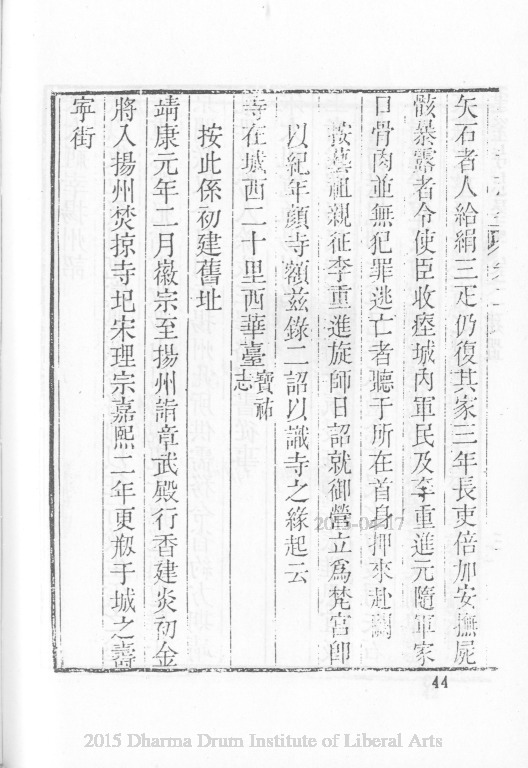 矢石者人給絹三疋仍復其家三年長吏倍加安撫屍
骸暴露者令使臣收瘞城內軍民及李重進元隨軍家
口骨肉並無犯罪逃亡者聽于所在首身押來赴闕
按藝祖親征李重進旋師日詔就御營立爲梵宮卽
以紀年顏寺額兹錄二詔以識寺之緣起云
寺在城西二十里西華臺寶祐志
按此係初建舊址
靖康元年二月徽宗至揚州詣章武殿行香建炎初金
將入揚州焚掠寺圮宋理宗嘉熙二年更剏于城之壽
寧街
44
2015 Dharma Drum Institute of Liberal Arts